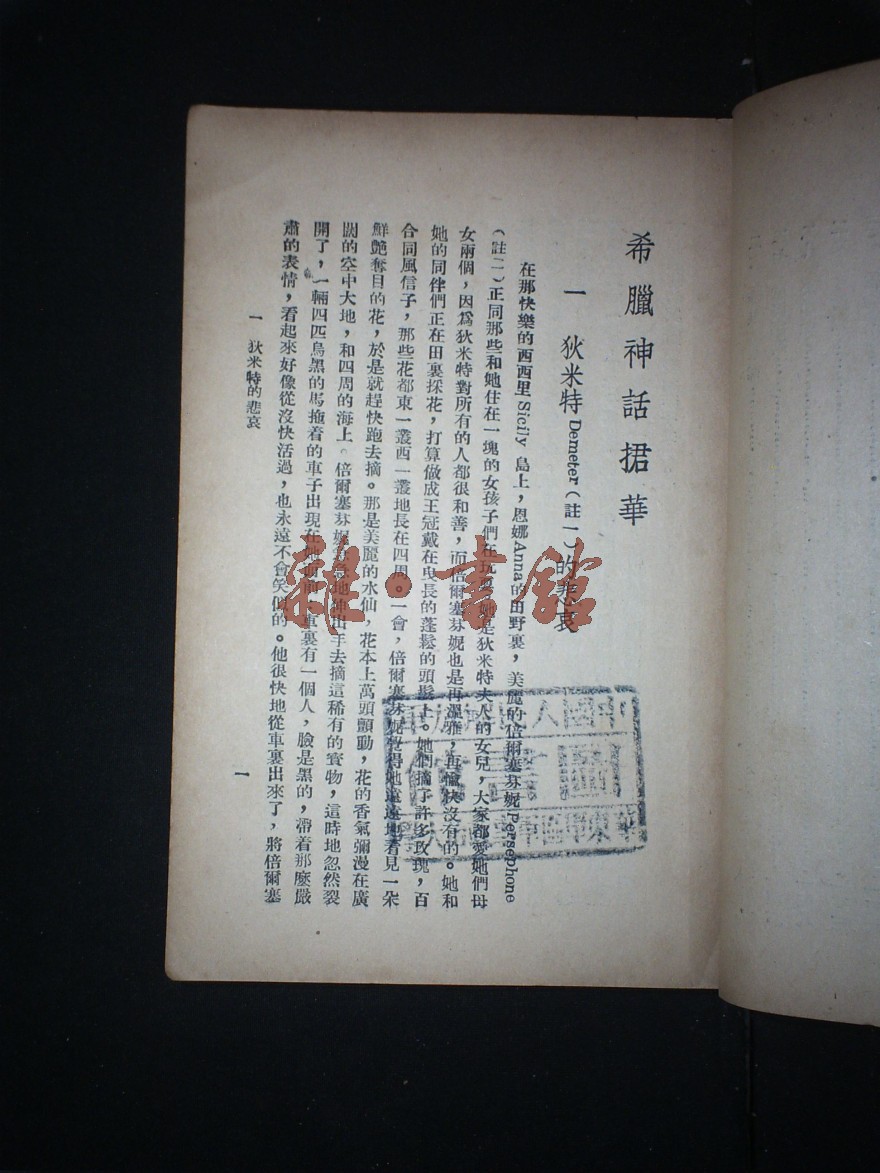 希臘神話捃華
一 狄米特Demeter（註一）的悲哀
在那快樂的西西里Sicily 島上，恩娜Anna的田野裏，美麗的倍爾塞芬妮Persephone
（註二）正同那些和她住在一塊的女孩子們在玩耍。她是狄米特夫人的女兒，大家都愛她們母
女兩個，因爲狄米特對所有的人都很和善，而倍爾塞芬妮也是再溫雅，再愉快沒有的。她和
她的同伴們正在田裏採花，打算做成王冠戴在曳長的蓬鬆的頭髮上。她們摘了許多玫瑰，百
合同風信子，那些花都東一叢西一叢地長在四周。一會，倍爾塞芬妮覺得她遠遠地看見一朵
鮮艷奪目的花，於是就趕快跑去摘。那是美麗的水仙，花本上萬頭顫動，花的香氣彌漫在廣
闊的空中大地，和四周的海上。倍爾塞芬妮 地伸出手去摘這稀有的寶物，這時地忽然裂
開了，一輛四匹烏黑的馬拖着的車子出現在她 車裏有一個人，臉是黑的，帶着那麽嚴
肅的表情，看起來好像從沒快活過，也永遠不會笑似的。他很快地從車裏出來了，將倍爾塞
一 狄米特的悲哀
一
雜·書館
中國人
圖